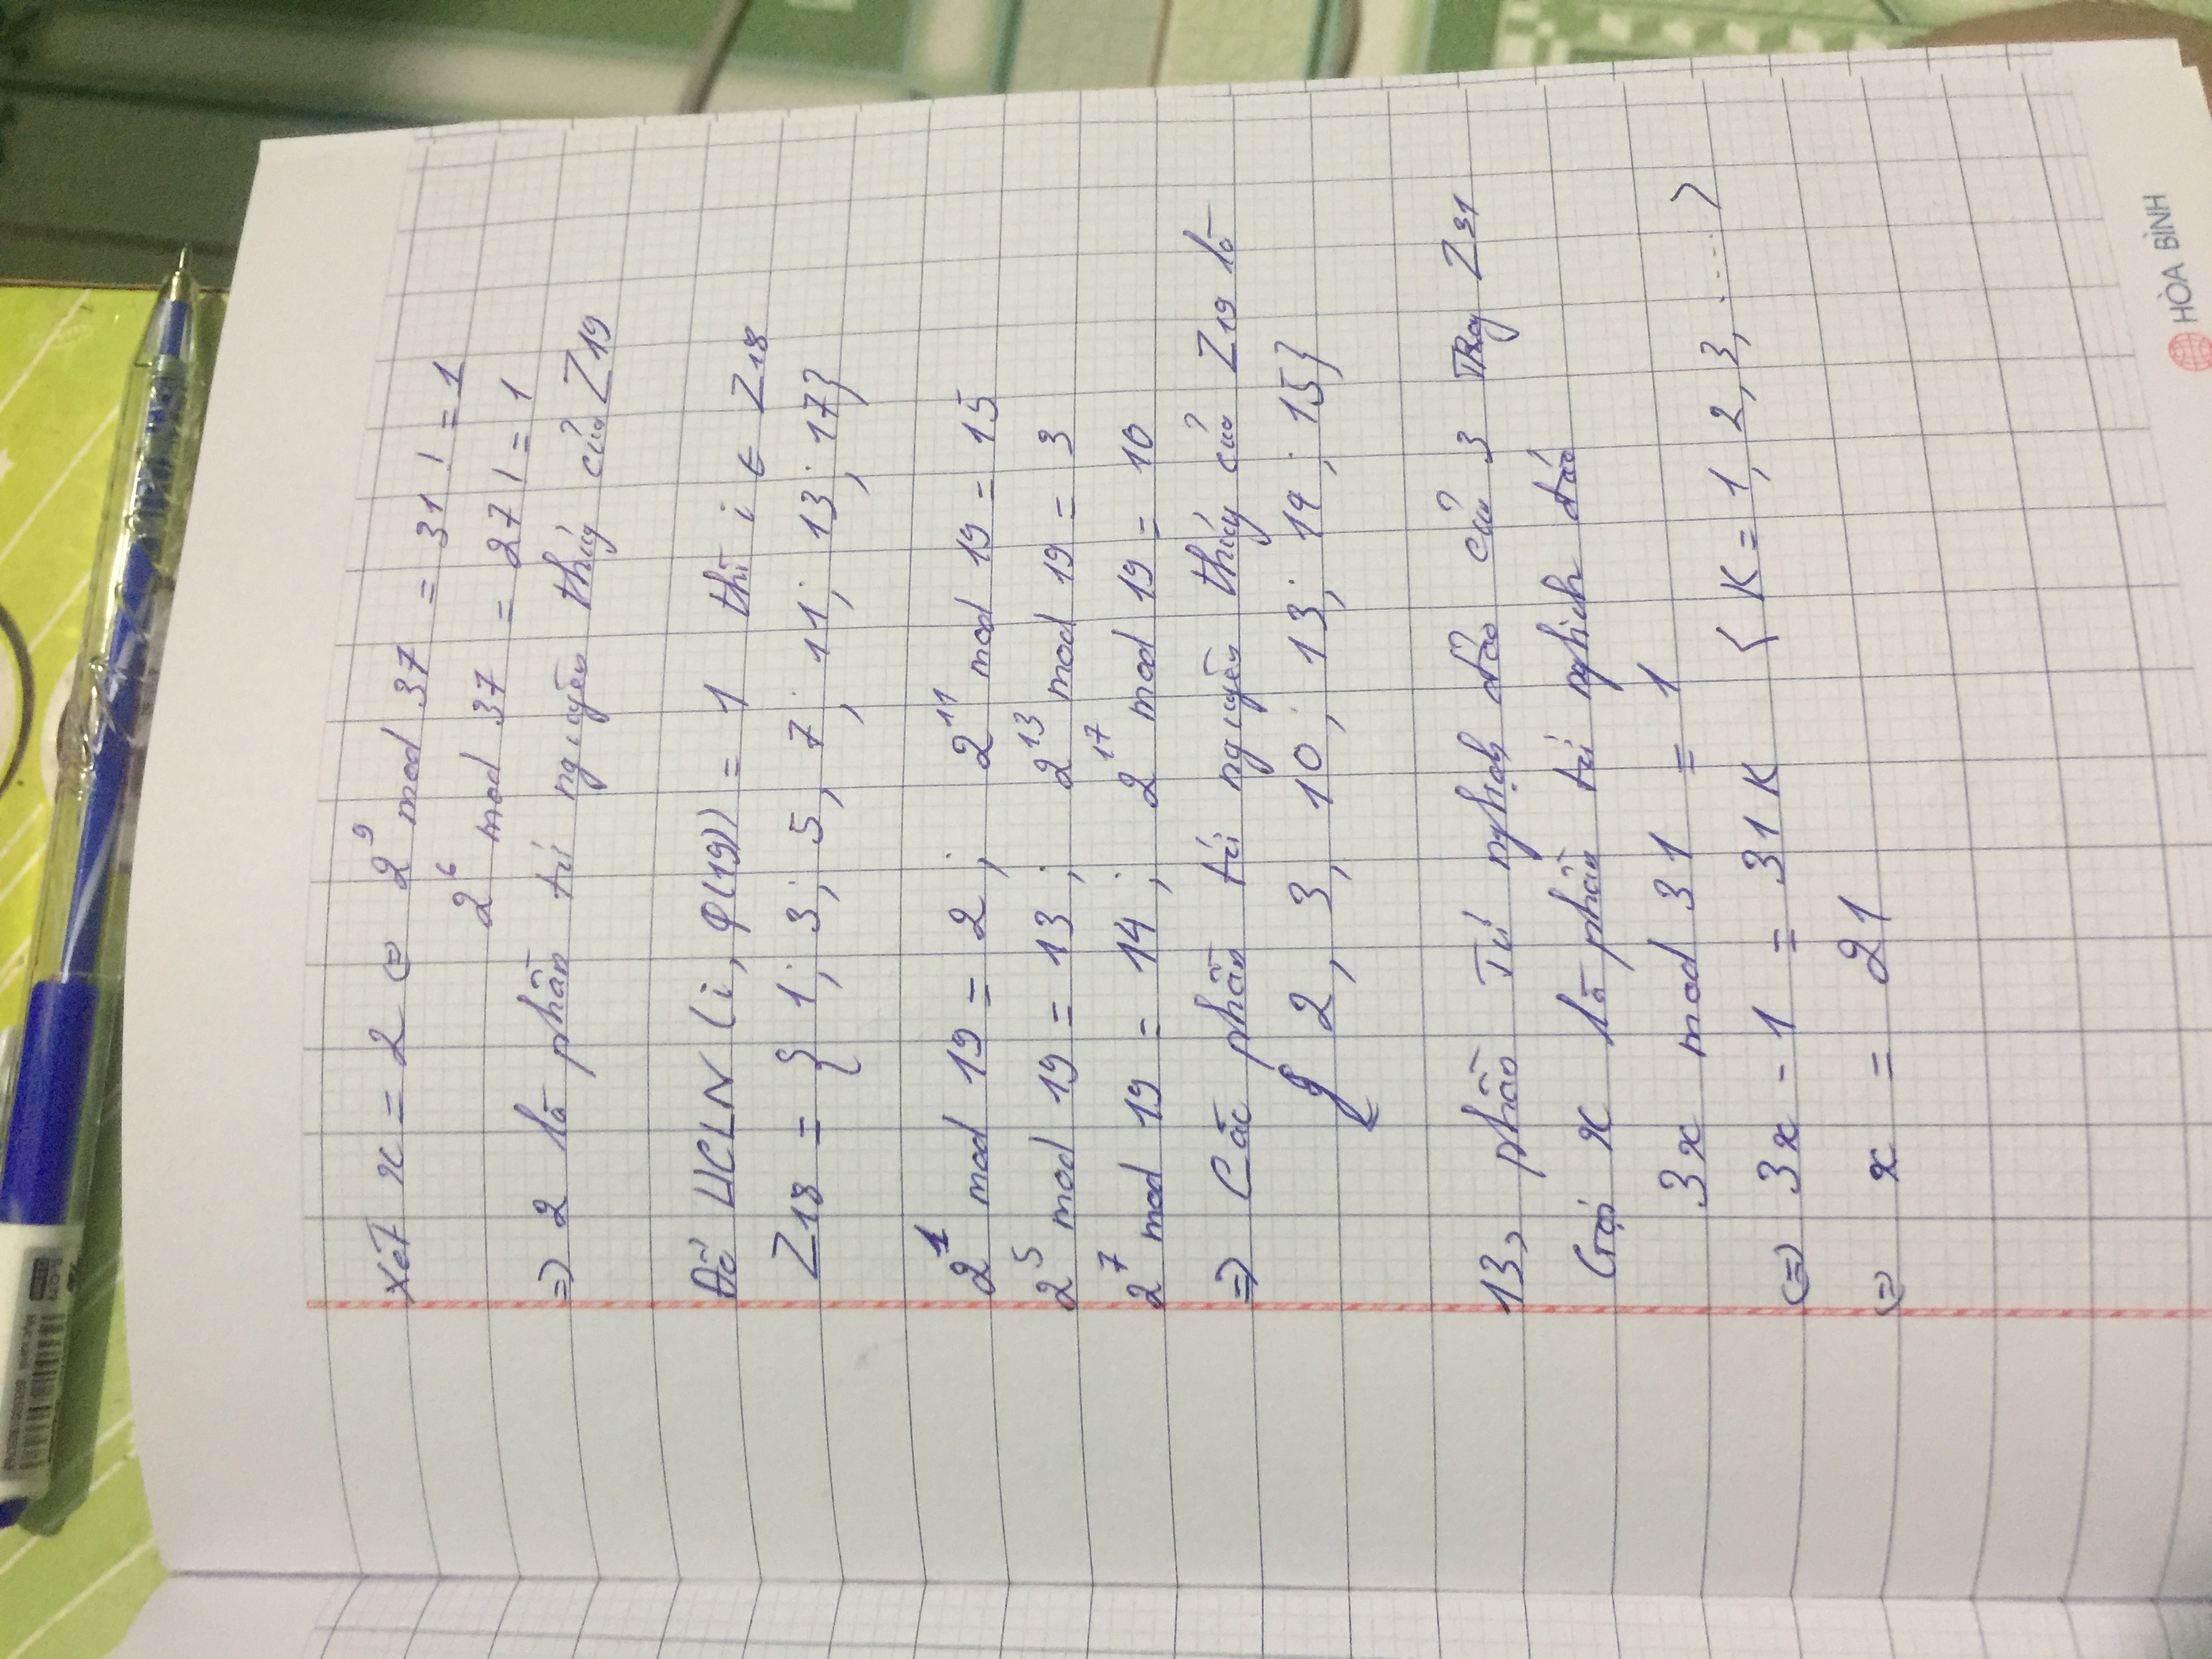 Xét x = 2 ⇔ 2^9 mod 37 = 31 != 1
2^6 mod 37 = 27 != 1
=> 2 là phần tử nguyên thủy của Z19
Để UCLN (i, φ(19)) = 1 thì i ∈ Z18
Z18 = { 1; 3; 5, 7; 11; 13; 17}
2^1 mod 19 = 2 ; 2^11 mod 19 = 15
2^5 mod 19 = 13 ; 2^13 mod 19 = 3
2^7 mod 19 = 14 ; 2^17 mod 19 = 10
=> Các phần tử nguyên thủy của Z19 là
{ 2, 3, 10; 13; 14; 15}
13, phần Tử nghịch đảo của 3 Trg Z31
Gọi x là phần tử nghịch đảo
3x mod 31 = 1
(=) 3x - 1 = 31K ( K = 1, 2, 3, ..... )
(=) x = 21
HÒA BÌNH